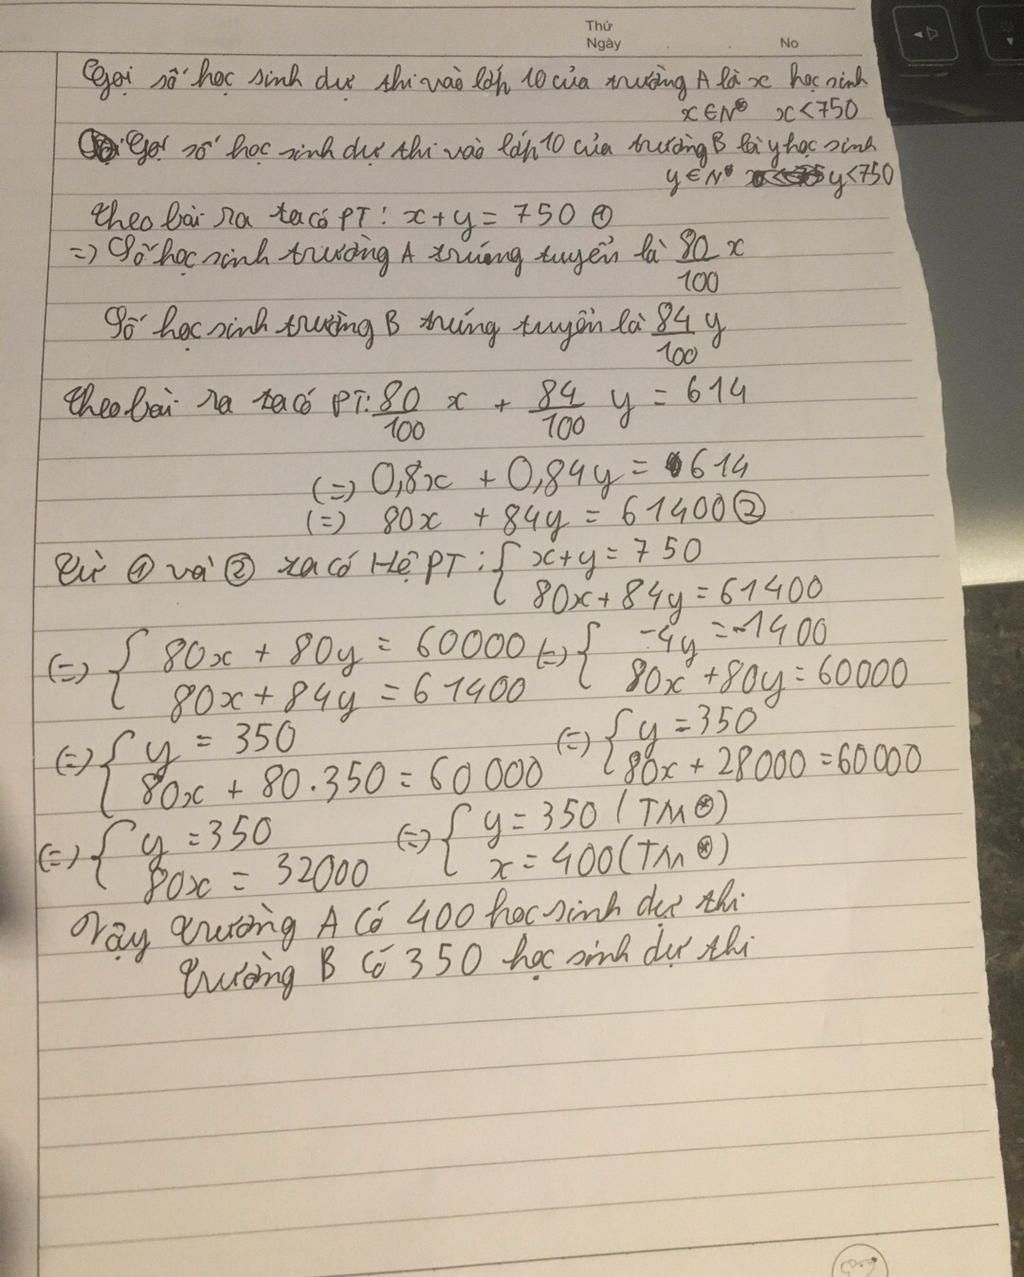 Thứ
Ngày No
Gọi số học sinh dự thi vào lớp 10 của trường A là x học sinh
x ∈ N* x < 750
Gọi số học sinh dự thi vào lớp 10 của trường B là y học sinh
y ∈ N* y < 750
Theo bài ra ta có PT: x + y = 750 ①
=> Số học sinh trường A trúng tuyển là 80/100 x
Số học sinh trường B trúng tuyển là 84/100 y
Theo bài ra ta có PT: 80/100 x + 84/100 y = 614
(=) 0,8x + 0,84y = 614
(=) 80x + 84y = 61400 ②
Từ ① và ② ta có Hệ PT: { x + y = 750
80x + 84y = 61400
(=) { 80x + 80y = 60000 (=) { -4y = -1400
80x + 84y = 61400 80x + 80y = 60000
(=) { y = 350 (=) { y = 350
80x + 80.350 = 60000 80x + 28000 = 60000
(=) { y = 350 (=) { y = 350 (TM*)
80x = 32000 x = 400 (TM*)
Vậy trường A có 400 học sinh dự thi
trường B có 350 học sinh dự thi